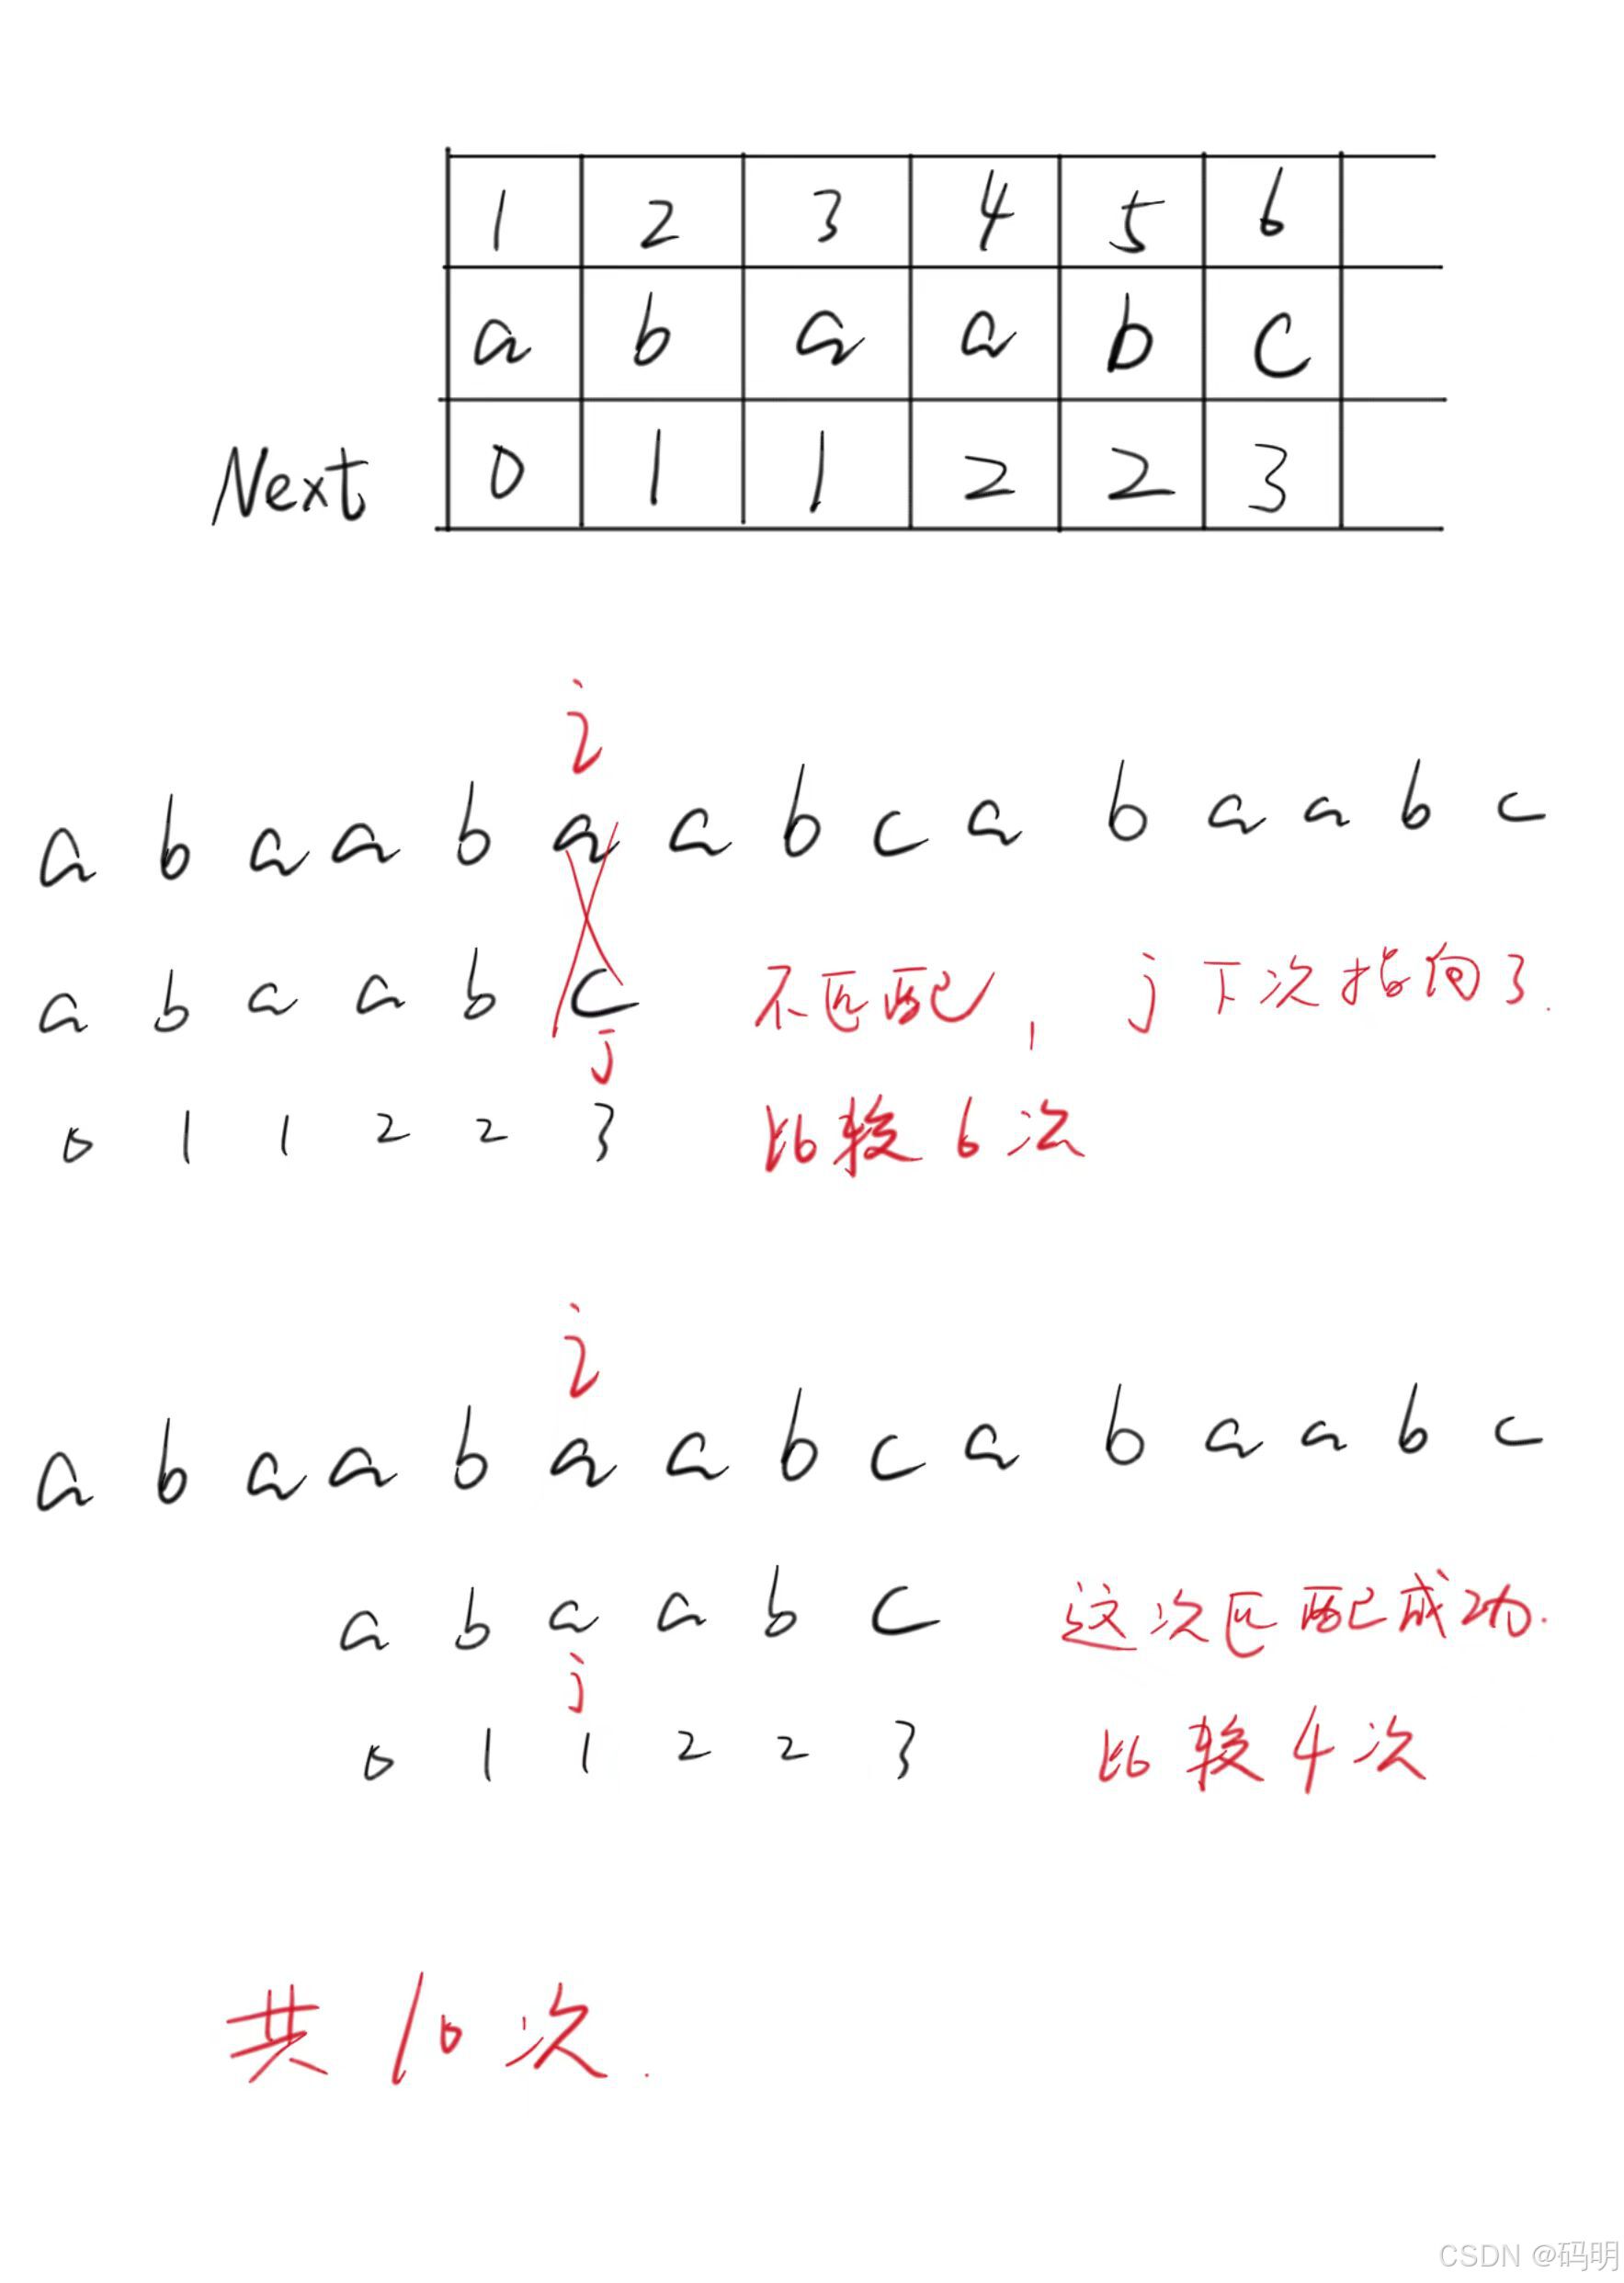 1 2 3 4 5 6
a b a a b c
Next 0 1 1 2 2 3
i
a b a a b a a b c a b a a b c
a b a a b c 不匹配, j下次指向3.
j
0 1 1 2 2 3 比较6次
i
a b a a b a a b c a b a a b c
a b a a b c 这次匹配成功.
j
0 1 1 2 2 3 比较4次
共10次.
CSDN @码明